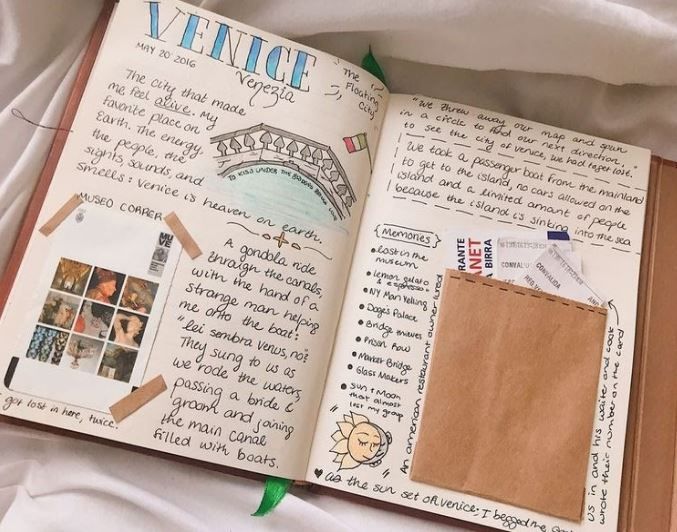 VENICE
MAY 20 2016
Venezia
"The
Floating
City"
The city that made
me feel alive. My
favorite place on
Earth. The energy,
the people, the
sights, sounds, and
smells: Venice is heaven on earth.
TO KISS UNDER THE
MUSEO CORRER
got lost in here, twice.
A gondola ride
through the canals,
with the hand of a
strange man helping
me onto the boat:
"lei sembra venus, no?"
They sung to us as
we rode the waters,
passing a bride &
groom and joining
the main canal
filled with boats.
"We threw away our map and spun
in a circle to find our next direction.
to see the city of Venice, we had to get lost."
We took a passenger boat from the mainland
to get to the island, no cars allowed on the
island and a limited amount of people
because the island is sinking into the sea
{Memories}
• Lost in the
museum
• lemon gelato
& espresso
• NY Man Yelling
• Doge's Palace
• Bridge thieves
• Prison Row
• Market Bridge
• Glass Makers
• Sun + Moon
that almost
lost my group
RANTE
NET
BIRRA
CONVALIDA
An american restaurant owner lured
us in and his waiter and cook
wrote their number on the card
♥ as the sun set on Venice, I begged me